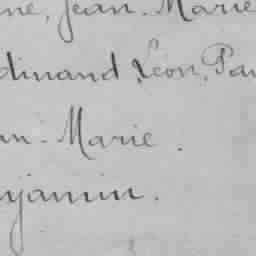 ne, Jean-Marie
dinand Léon, Pau
an-Marie.
njamin.